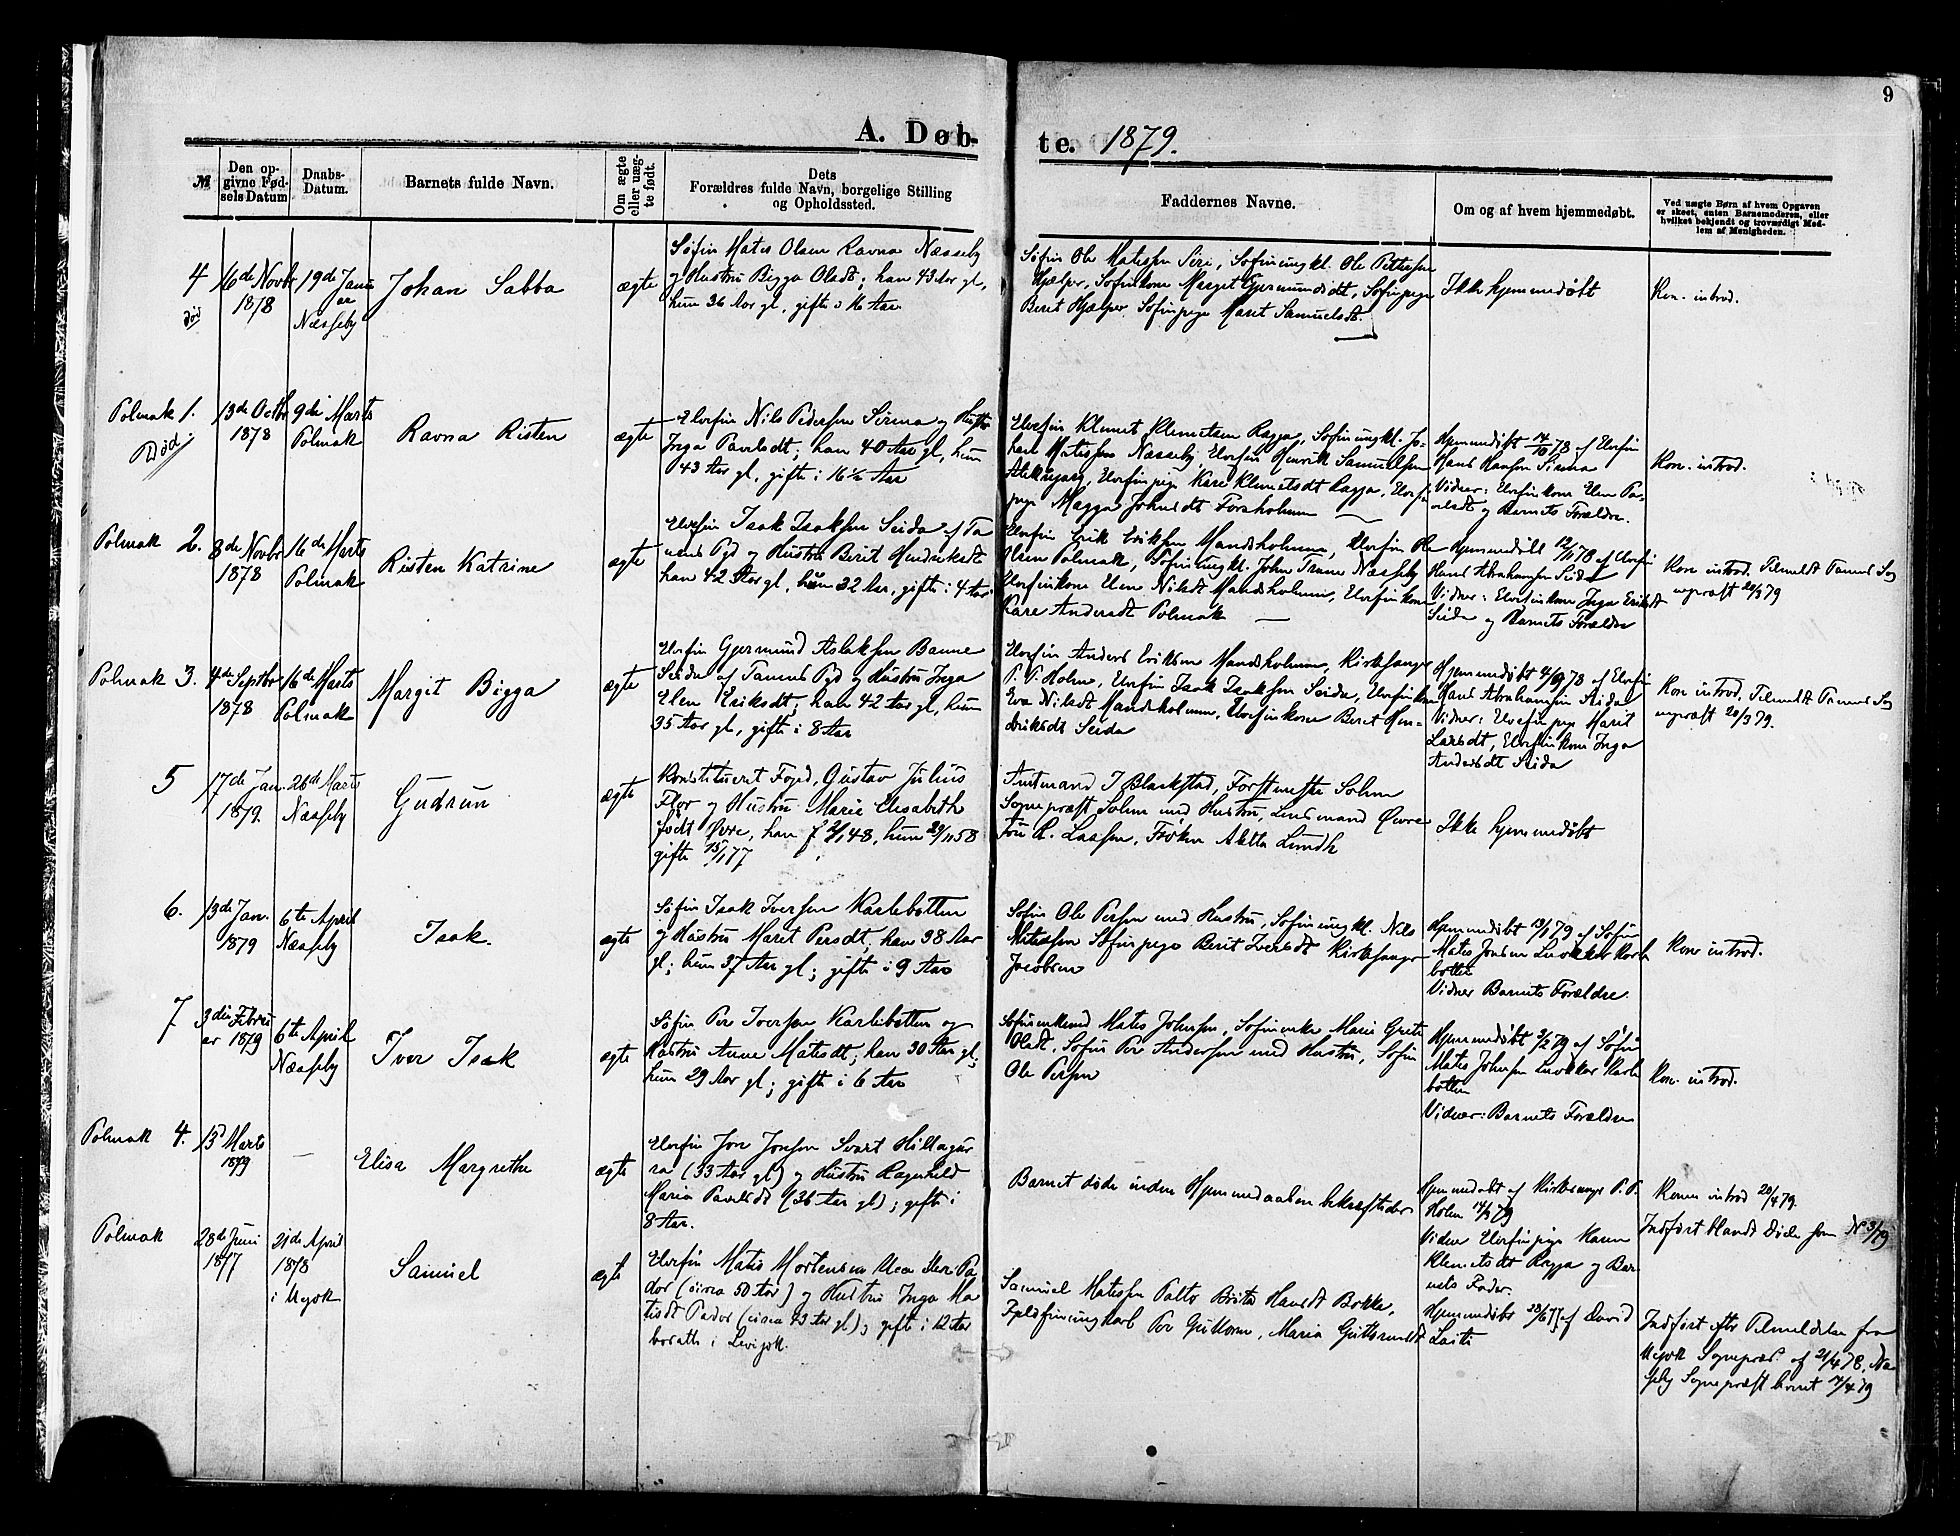 9
A. Døb-
te. 1879.
№
Den op-
givne Fød-
sels Datum
Daabs-
Datum.
Barnets fulde Navn.
Om ægte
eller uæg-
te født.
Dets
Forældres fulde Navn, borgelige Stilling
og Opholdssted.
Faddernes Navne.
Om og af hvem hjemmedøbt.
Ved uægte Børn af hvem Opgaven
er skeet, enten Barnemoderen, eller
hvilket bekjendt og troværdigt Med-
lem af Menigheden.
4
død
16de Novbr
1878
19de Janu
ar
Næsseby
Johan Sabba
ægte
Søfin Mates Olsen Ravna Næsseby
og Hustru Bigga Olsdt; han 43 Aar gl,
hun 36 Aar gl, gifte i 16 Aar
Søfin Ole Matessen Siri, Søfinungkl. Ole Pettersen
Hjælper, Søfinkone Marget Gjermundsdt, Søfinpige
Berit Hjælper, Søfinpige Maret Samuelsdt.
Ikke hjemmedøbt
Kon. introd.
Polmak 1.
Død
13de Octbr
1878
9de Marts
Polmak
Ravna Risten
ægte
Elvefin Nils Pedersen Sirma og Hustru
Inga Pavelsdt; han 40 Aar gl, hun
43 Aar gl, gifte i 16½ Aar
Elvefin Klemet Klemetsen Ragja, Søfinungkl. Jo-
han Matissen Næsseby, Elvefin Henrik Samuelsen
Elvefinpige Kare Klemetsdt Ragja, Elvefin
pige Magga Johnsdt Forsholmen
Hjemmedøbt 14/10 78 af Elvefin
Hans Hansen Sirma
Vidner: Elvefinkone Elen Pa-
velsdt og Barnets Forældre.
Kon. introd.
Polmak 2.
8de Novbr
1878
16de Marts
Polmak
Risten Katrine
ægte
Elvefin Isak Isaksen Seida af Ta
nens Pgd og Hustru Berit Hendriksdt
han 42 Aar gl, hun 22 Aar, gifte i 4 Aar
Elvefin Erik Eriksen Mandsholmen, Elvefin Ole
Olsen Polmak, Søfinungkl. John Trane Næsseby
Elvefinkone Elen Nilsdt Mandsholmen, Elvefinkone
Kare Andersdt Polmak
Hjemmedøbt 12/11 78 af Elvefin
Hans Abrahamsen Seida
Vidner: Elvefinkone Inga Eriksdt
Seida og Barnets Forældre
Kon introd. Tilmeldt Tanens So
gnepræst 20/3 79
Polmak 3.
4de Septbr
1878
16de Marts
Polmak
Margit Bigga
ægte
Elvefin Gjermund Aslaksen Banne
Seida af Tanens Pgd og Hustru Inga
Elen Eriksdt; han 42 Aar gl, hun
35 Aar gl, gifte i 8 Aar
Elvefin Anders Eriksen Mandsholmen, Kirkesanger
P. P. Holm, Elvefin Isak Isaksen Seida, Elvefinkone
Eva Nilsdt Mandsholmen, Elvefinkone Berit Hen-
driksdt Seida
Hjemmedøbt 4/9 78 af Elvefin
Hans Abrahamsen Seida
Vidner: Elvefinpige Marit
Larsdt, Elvefinkone Inga
Andersdt Seida
Kon introd. Tilmeldt Tanens So
gnepræst 20/3 79.
5
17de Jan.
1879.
26de Marts
Næsseby
Gudrun
ægte
Konstitueret Foged, Gustav Julius
Flor og Hustru Marie Elisabeth
født Øvre, han f 2/1 48, hun 29/11 58
gifte 15/1 77
Amtmand J Blackstad, Forstmester Solem
Sognepræst Solem med Hustru, Lensmand Øvre
Fru R. Laassen, Frøken Aletta Lundh
Ikke hjemmedøbt
6.
13de Jan.
1879
6te April
Næsseby
Isak.
ægte
Søfin Isak Iversen Karlebotten
og Hustru Maret Persdt, han 38 Aar
gl; hun 37 Aar gl; gifte i 9 Aar
Søfin Ole Persen med Hustru, Søfinungkl. Nils
Matissen Søfinpige Berit Iversdt Kirkesanger
Jacobsen
Hjemmedøbt 13/1 79 af Søfin
Mates Jonsen Luokkar Karle
botten
Vidner Barnets Forældre.
Kon introd.
7
3die Febru
ar 1879
6te April
Næsseby
Iver Isak
ægte
Søfin Per Iversen Karlebotten og
Hustru Anne Matisdt; han 30 Aar gl;
hun 29 Aar gl; gifte i 6 Aar
Søfinenkemd Mates Johnsen, Søfinenke Marie Grete
Olsdt, Søfin Per Andersen med Hustru, Søfin
Ole Persen
Hjemmedøbt 3/2 79 af Søfin
Mates Johnsen Luokkar Karle
botten
Vidner: Barnets Forældre
Kon. introd.
Polmak 4.
13de Marts
1879
—
Elisa Margrethe
ægte
Elvefin Jon Jonsen Svart Hillagur
ra (33 Aar gl) og Hustru Ragnhild
Maria Pavelsdt (36 Aar gl); gifte i
8 Aar.
Barnet døde inden Hjemmedaaben bekræftedes
Hjemmedøbt af Kirkesanger P. P.
Holm 14/3 79
Vidner Elvefinpige Karen
Klemetsdt Ragja og Bar-
nets Fader.
Konen introd 20/4 79.
Indført blandt Døde som No 3/79
Polmak
28de Juni
1877
21de April
1878
i Utsjok
Samuel
ægte
Elvefin Matis Mortensen Pa-
dor (circa 50 Aar) og Hustru Inga Ma
tisdt Pador (circa 43 Aar gl); gifte i 12 Aar
bosatte i Levijok.
Samuel Matessen Palto Brita Hansdt Bokke,
Fjeldfinungkarl Per Guttorm, Maria Guttormsdt
Hjemmedøbt 28/6 77 af David
Laiti
Indført efter Tilmeldelse fra
Utsjok Sognepræst af 21/4 78, Næs
seby Sognepræst 7/4 79